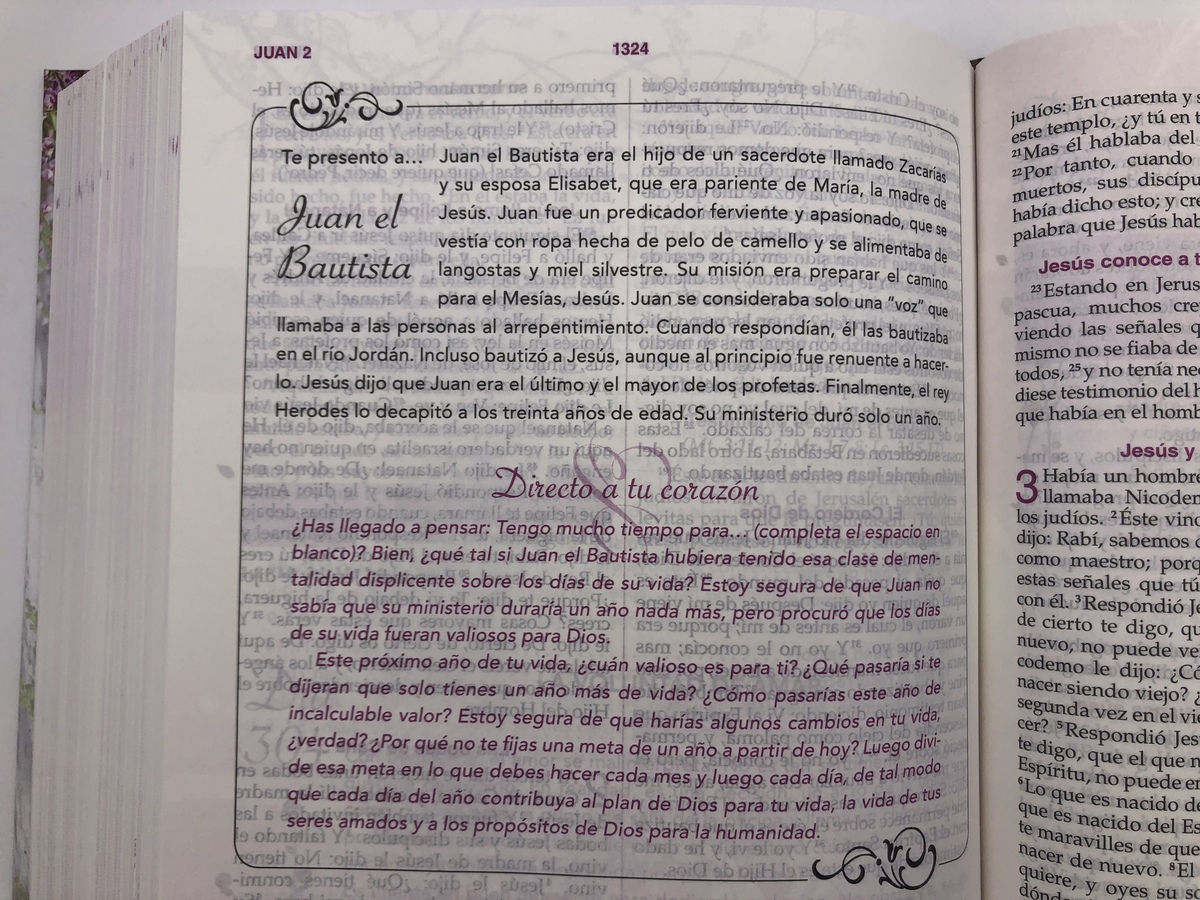 JUAN 2
1324
Te presento a...
Juan el
Bautista
Juan el Bautista era el hijo de un sacerdote llamado Zacarías
y su esposa Elisabet, que era pariente de María, la madre de
Jesús. Juan fue un predicador ferviente y apasionado, que se
vestía con ropa hecha de pelo de camello y se alimentaba de
langostas y miel silvestre. Su misión era preparar el camino
para el Mesías, Jesús. Juan se consideraba solo una "voz" que
llamaba a las personas al arrepentimiento. Cuando respondían, él las bautizaba
en el río Jordán. Incluso bautizó a Jesús, aunque al principio fue renuente a hacer-
lo. Jesús dijo que Juan era el último y el mayor de los profetas. Finalmente, el rey
Herodes lo decapitó a los treinta años de edad. Su ministerio duró solo un año.
Directo a tu corazón
¿Has llegado a pensar: Tengo mucho tiempo para... (completa el espacio en
blanco)? Bien, ¿qué tal si Juan el Bautista hubiera tenido esa clase de men-
talidad displicente sobre los días de su vida? Estoy segura de que Juan no
sabía que su ministerio duraría un año nada más, pero procuró que los días
de su vida fueran valiosos para Dios.
Este próximo año de tu vida, ¿cuán valioso es para ti? ¿Qué pasaría si te
dijeran que solo tienes un año más de vida? ¿Cómo pasarías este año de
incalculable valor? Estoy segura de que harías algunos cambios en tu vida,
¿verdad? ¿Por qué no te fijas una meta de un año a partir de hoy? Luego divi-
de esa meta en lo que debes hacer cada mes y luego cada día, de tal modo
que cada día del año contribuya al plan de Dios para tu vida, la vida de tus
seres amados y a los propósitos de Dios para la humanidad.
judíos: En cuarenta y s
este templo, ¿y tú en t
21Mas él hablaba del
22Por tanto, cuando
muertos, sus discípu
había dicho esto; y cre
palabra que Jesús hab
Jesús conoce a t
23Estando en Jerus
pascua, muchos cre
viendo las señales q
mismo no se fiaba de
todos, 25y no tenía ne
diese testimonio del h
que había en el homb
Jesús y
3 Había un hombre
llamaba Nicoder
los judíos. 2Éste vino
dijo: Rabí, sabemos
como maestro; porq
estas señales que tú
con él. 3Respondió Je
de cierto te digo, qu
nuevo, no puede ver
codemo le dijo: ¿Có
nacer siendo viejo? ¿
segunda vez en el vie
cer? 5Respondió Jes
te digo, que el que n
Espíritu, no puede en
6Lo que es nacido de
que es nacido del Es
te maravilles de que
nacer de nuevo. 8El
quiere, y oyes su so
dónde